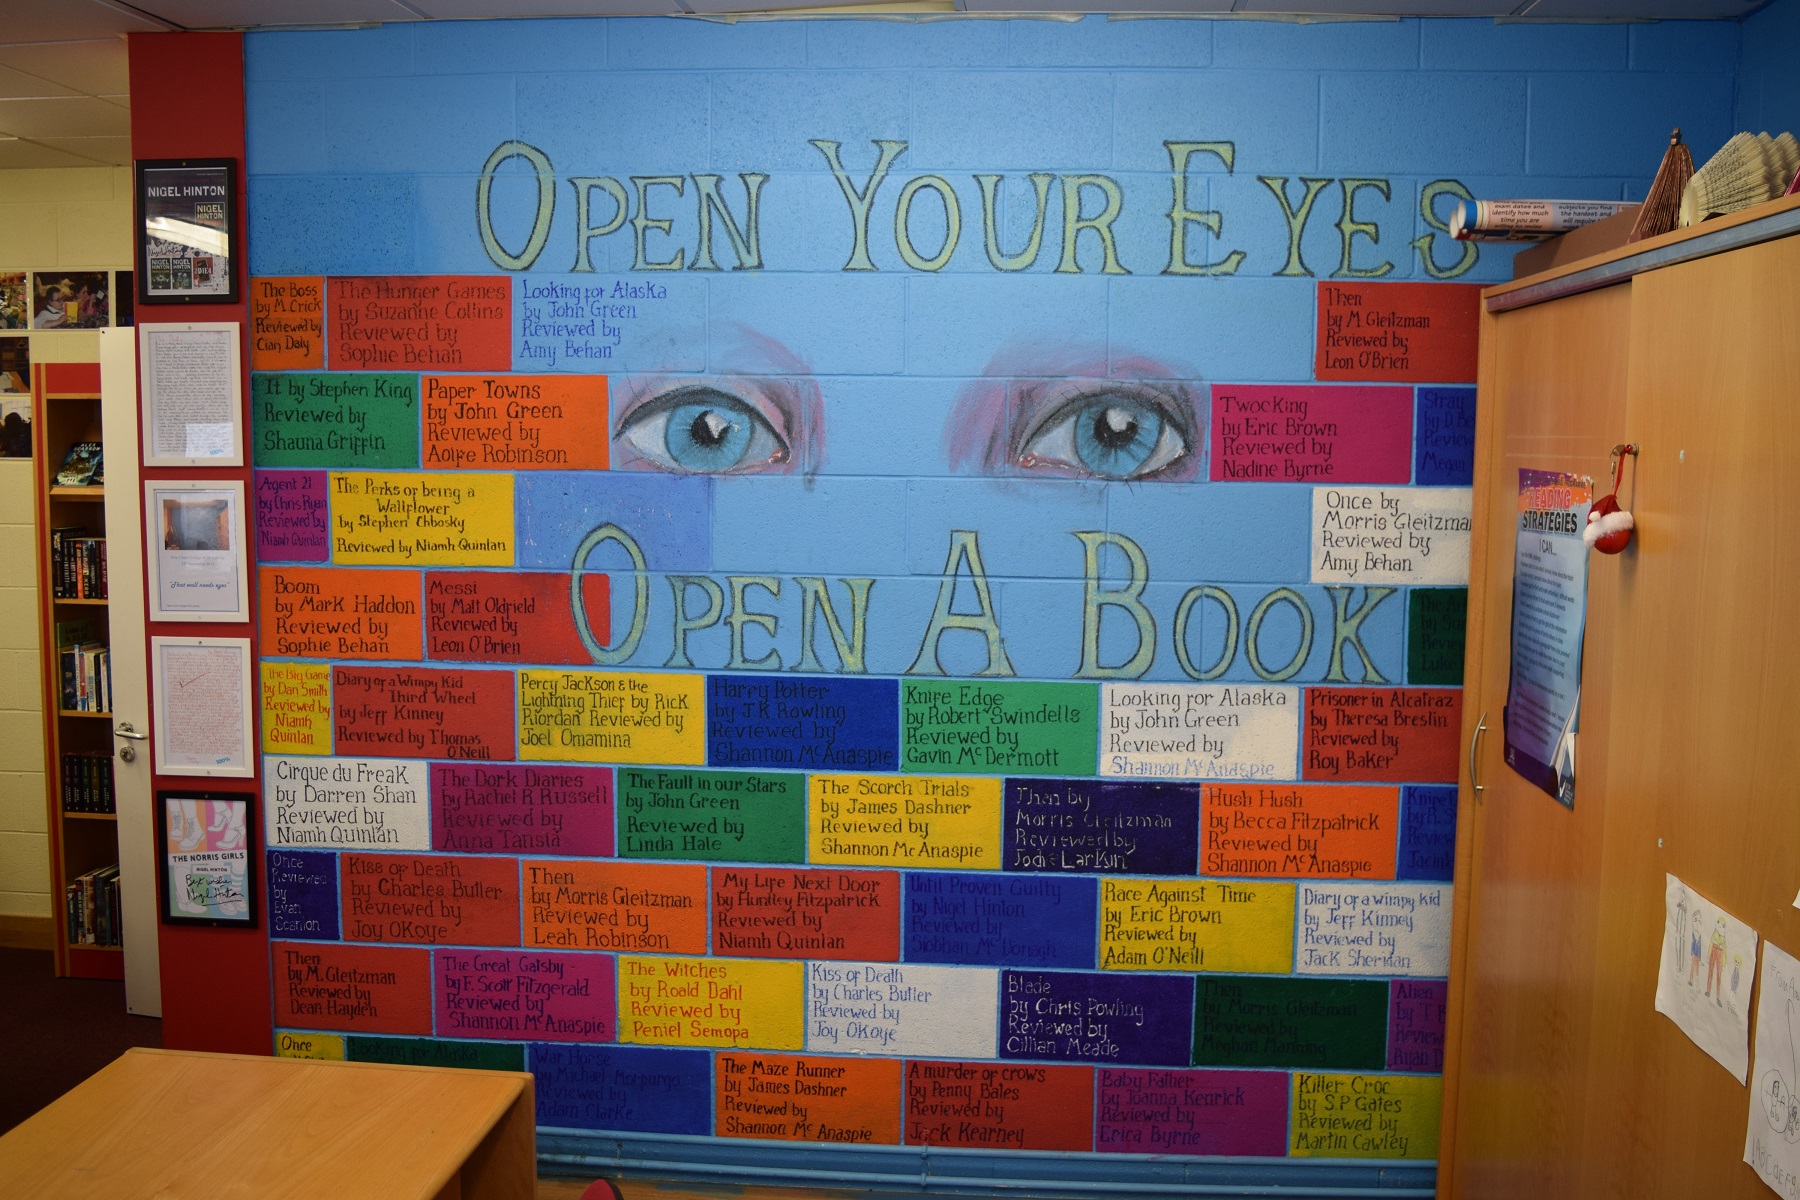 OPEN YOUR EYES
NIGEL HINTON
NIGEL
HINTON
The Boss
by M. Crick
Reviewed by
Cian Daly
The Hunger Games
by Suzanne Collins
Reviewed by
Sophie Behan
Looking for Alaska
by John Green
Reviewed by
Amy Behan
Then
by M. Gleitzman
Reviewed by
Leon O'Brien
It by Stephen King
Reviewed by
Shauna Griffin
Paper Towns
by John Green
Reviewed by
Aoife Robinson
Twocking
by Eric Brown
Reviewed by
Nadine Byrne
Stray
by D.
Review
Megan
Agent 21
by Chris Ryan
Reviewed by
Niamh Quinlan
The Perks of being a
Wallflower
by Stephen Chbosky
Reviewed by Niamh Quinlan
Once by
Morris Gleitzman
Reviewed by
Amy Behan
OPEN A BOOK
Boom
by Mark Haddon
Reviewed by
Sophie Behan
Messi
by Matt Oldfield
Reviewed by
Leon O'Brien
"That wall needs eyes"
The Big Game
by Dan Smith
Reviewed by
Niamh
Quinlan
Diary of a Wimpy Kid
Third Wheel
by Jeff Kinney
Reviewed by Thomas
O'Neill
Percy Jackson & the
Lightning Thief by Rick
Riordan Reviewed by
Joel Omamina
Harry Potter
by J.K Rowling
Reviewed by
Shannon McAnaspie
Knife Edge
by Robert Swindells
Reviewed by
Gavin McDermott
Looking for Alaska
by John Green
Reviewed by
Shannon McAnaspie
Prisoner in Alcatraz
by Theresa Breslin
Reviewed by
Roy Baker
Cirque du Freak
by Darren Shan
Reviewed by
Niamh Quinlan
The Dork Diaries
by Rachel R Russell
Reviewed by
Anna Tansia
The Fault in our Stars
by John Green
Reviewed by
Linda Hale
The Scorch Trials
by James Dashner
Reviewed by
Shannon McAnaspie
Then by
Morris Gleitzman
Reviewed by
Jodie Larkin
Hush Hush
by Becca Fitzpatrick
Reviewed by
Shannon McAnaspie
Once
Reviewed
by
Evan
Scanlon
Kiss of Death
by Charles Butler
Reviewed by
Joy OKoye
Then
by Morris Gleitzman
Reviewed by
Leah Robinson
My Life Next Door
by Huntley Fitzpatrick
Reviewed by
Niamh Quinlan
Until Proven Guilty
by Nigel Hinton
Reviewed by
Siobhan McDonagh
Race Against Time
by Eric Brown
Reviewed by
Adam O'Neill
Diary of a wimpy kid
by Jeff Kinney
Reviewed by
Jack Sheridan
THE NORRIS GIRLS
NIGEL HINTON
Best wishes
Nigel Hinton
Then
by M. Gleitzman
Reviewed by
Dean Hayden
The Great Gatsby -
by F. Scott Fitzgerald
Reviewed by
Shannon McAnaspie
The Witches
by Roald Dahl
Reviewed by
Peniel Semopa
Kiss of Death
by Charles Butler
Reviewed by
Joy OKoye
Blade
by Chris Powling
Reviewed by
Cillian Meade
Then
by Morris Gleitzman
Reviewed by
Meghan Manning
Alien
by T
Review
Ryan D
Once
Looking for Alaska
War Horse
by Michael Morpurgo
Reviewed by
Adam Clarke
The Maze Runner
by James Dashner
Reviewed by
Shannon Mc Anaspie
A murder of crows
by Penny Bates
Reviewed by
Jack Kearney
Baby Father
by Joanna Kenrick
Reviewed by
Erica Byrne
Killer Croc
by S.P Gates
Reviewed by
Martin Cawley
READING
STRATEGIES
I CAN...
exam dates and
identify how much
time you are
subjects you find
the hardest and
will require